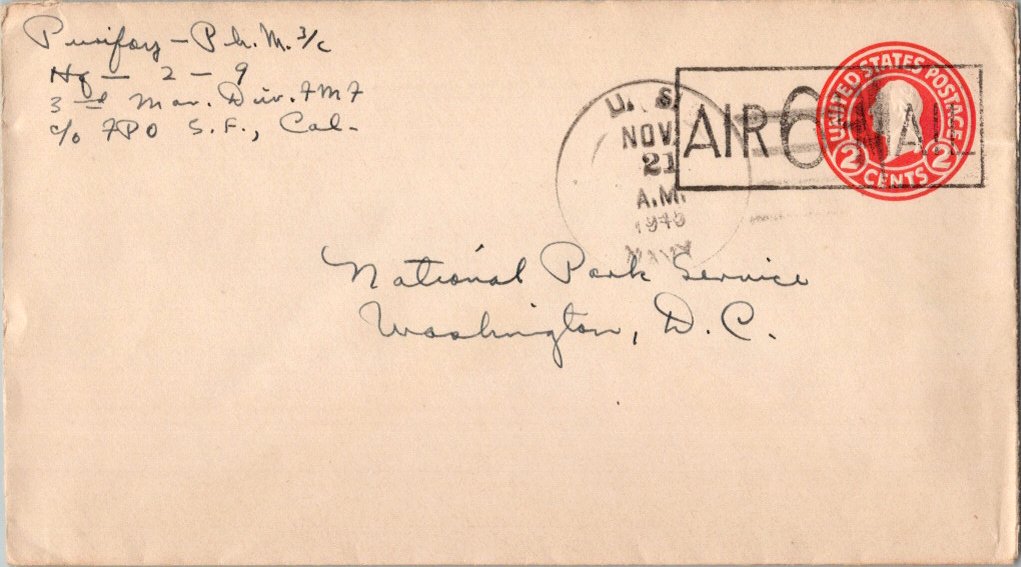 Purifoy - Ph. M. 3/c
Hq - 2 - 9
3rd Mar. Div. FMF
c/o FPO S.F., Cal.
U. S.
NOV
21
A.M.
AIR 6¢ MAIL
UNITED STATES POSTAGE
2 CENTS 2
National Park Service
Washington, D.C.